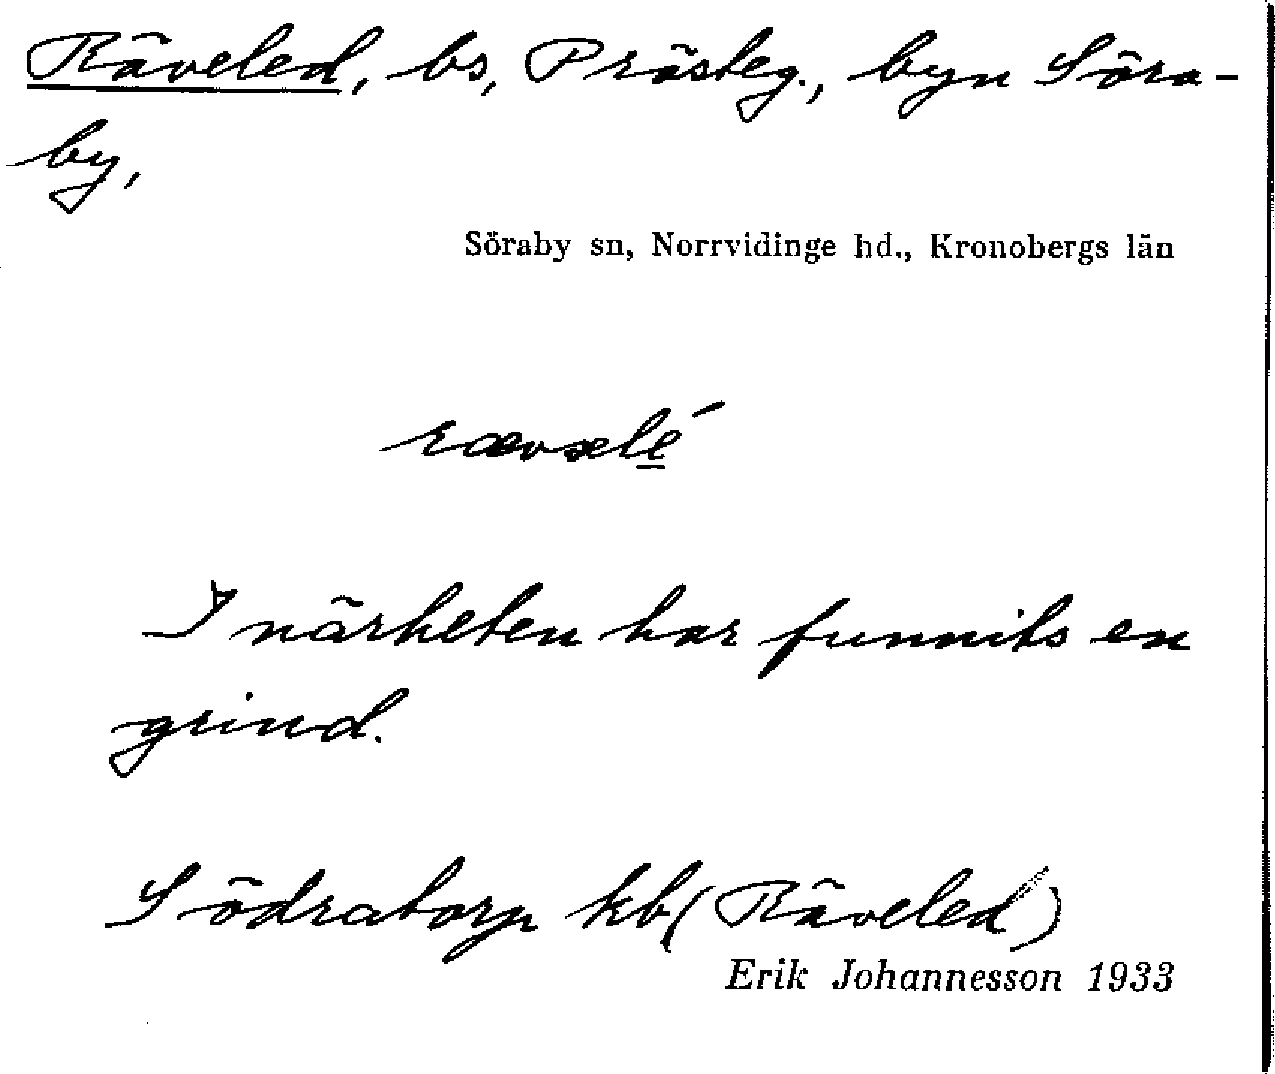 Räveled, bs, Prästeg., byn Söra-
by,
Söraby sn, Norrvidinge hd., Kronobergs län
rævælé
I närheten har funnits en
grind.
Södratorp kb (Räveled)
Erik Johannesson 1933